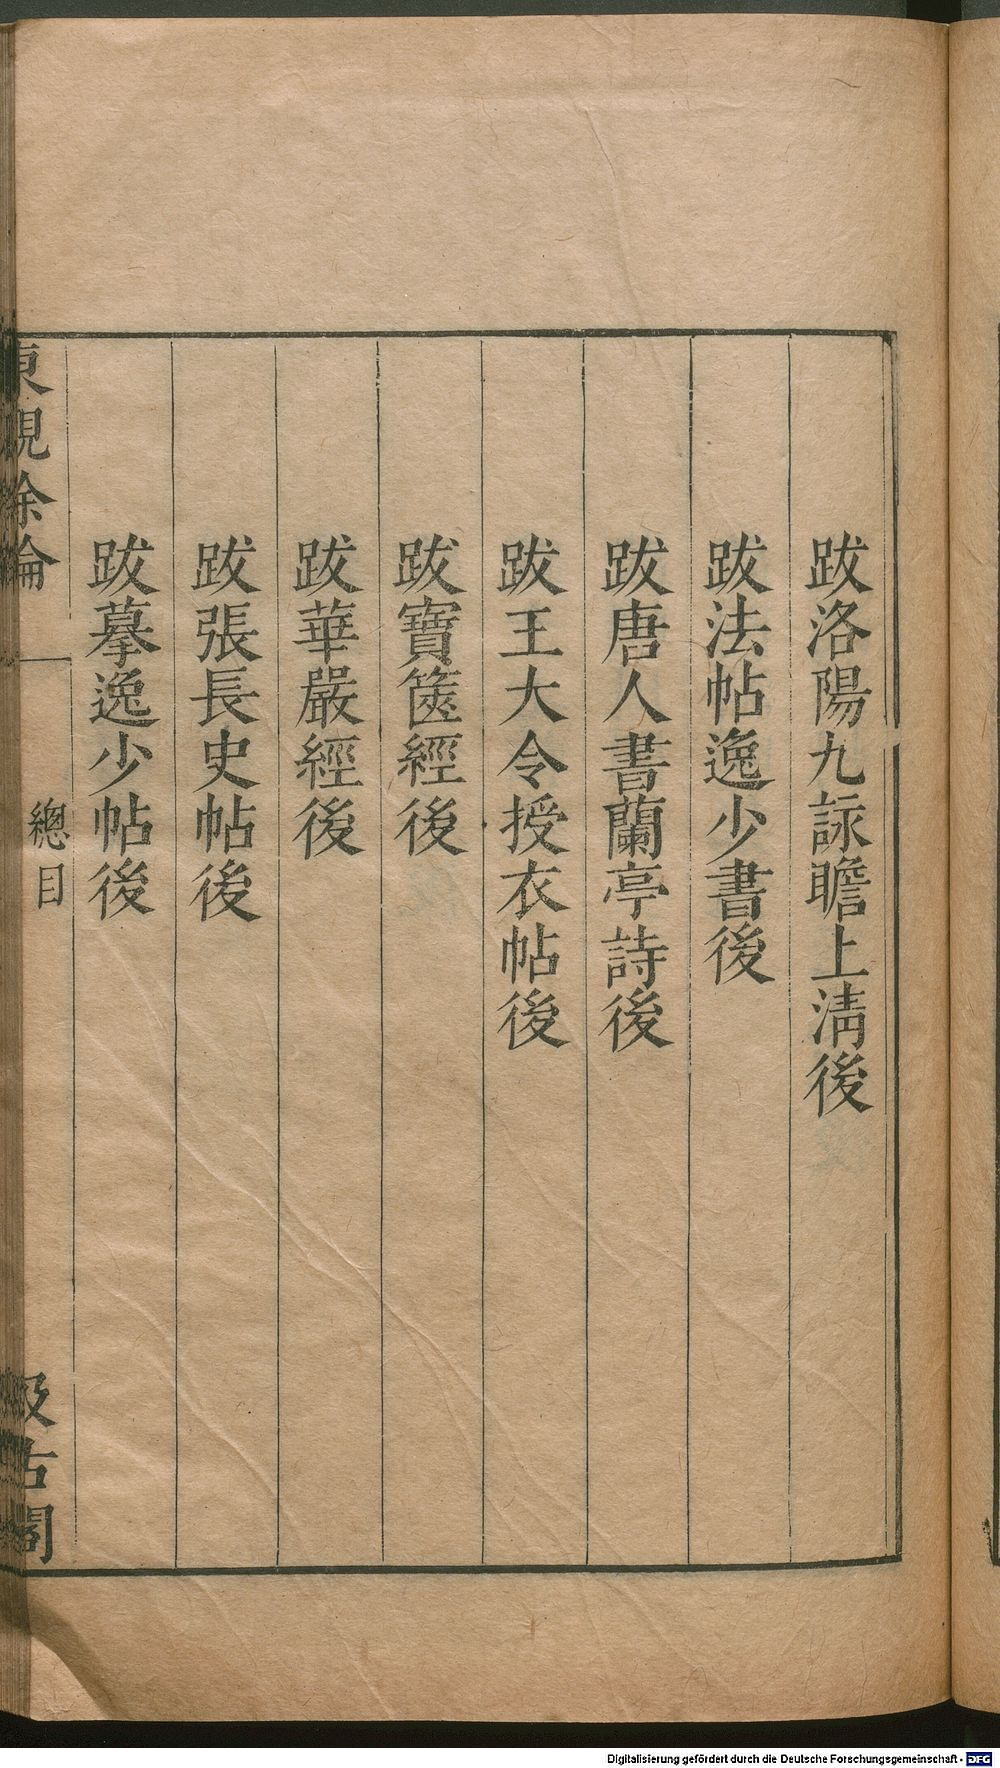 跋洛陽九詠瞻上清後
跋法帖逸少書後
跋唐人書蘭亭詩後
跋王大令授衣帖後
跋寶篋經後
跋華嚴經後
跋張長史帖後
跋摹逸少帖後
東觀餘論
總目
汲古閣
Digitalisierung gefördert durch die Deutsche Forschungsgemeinschaft - DFG